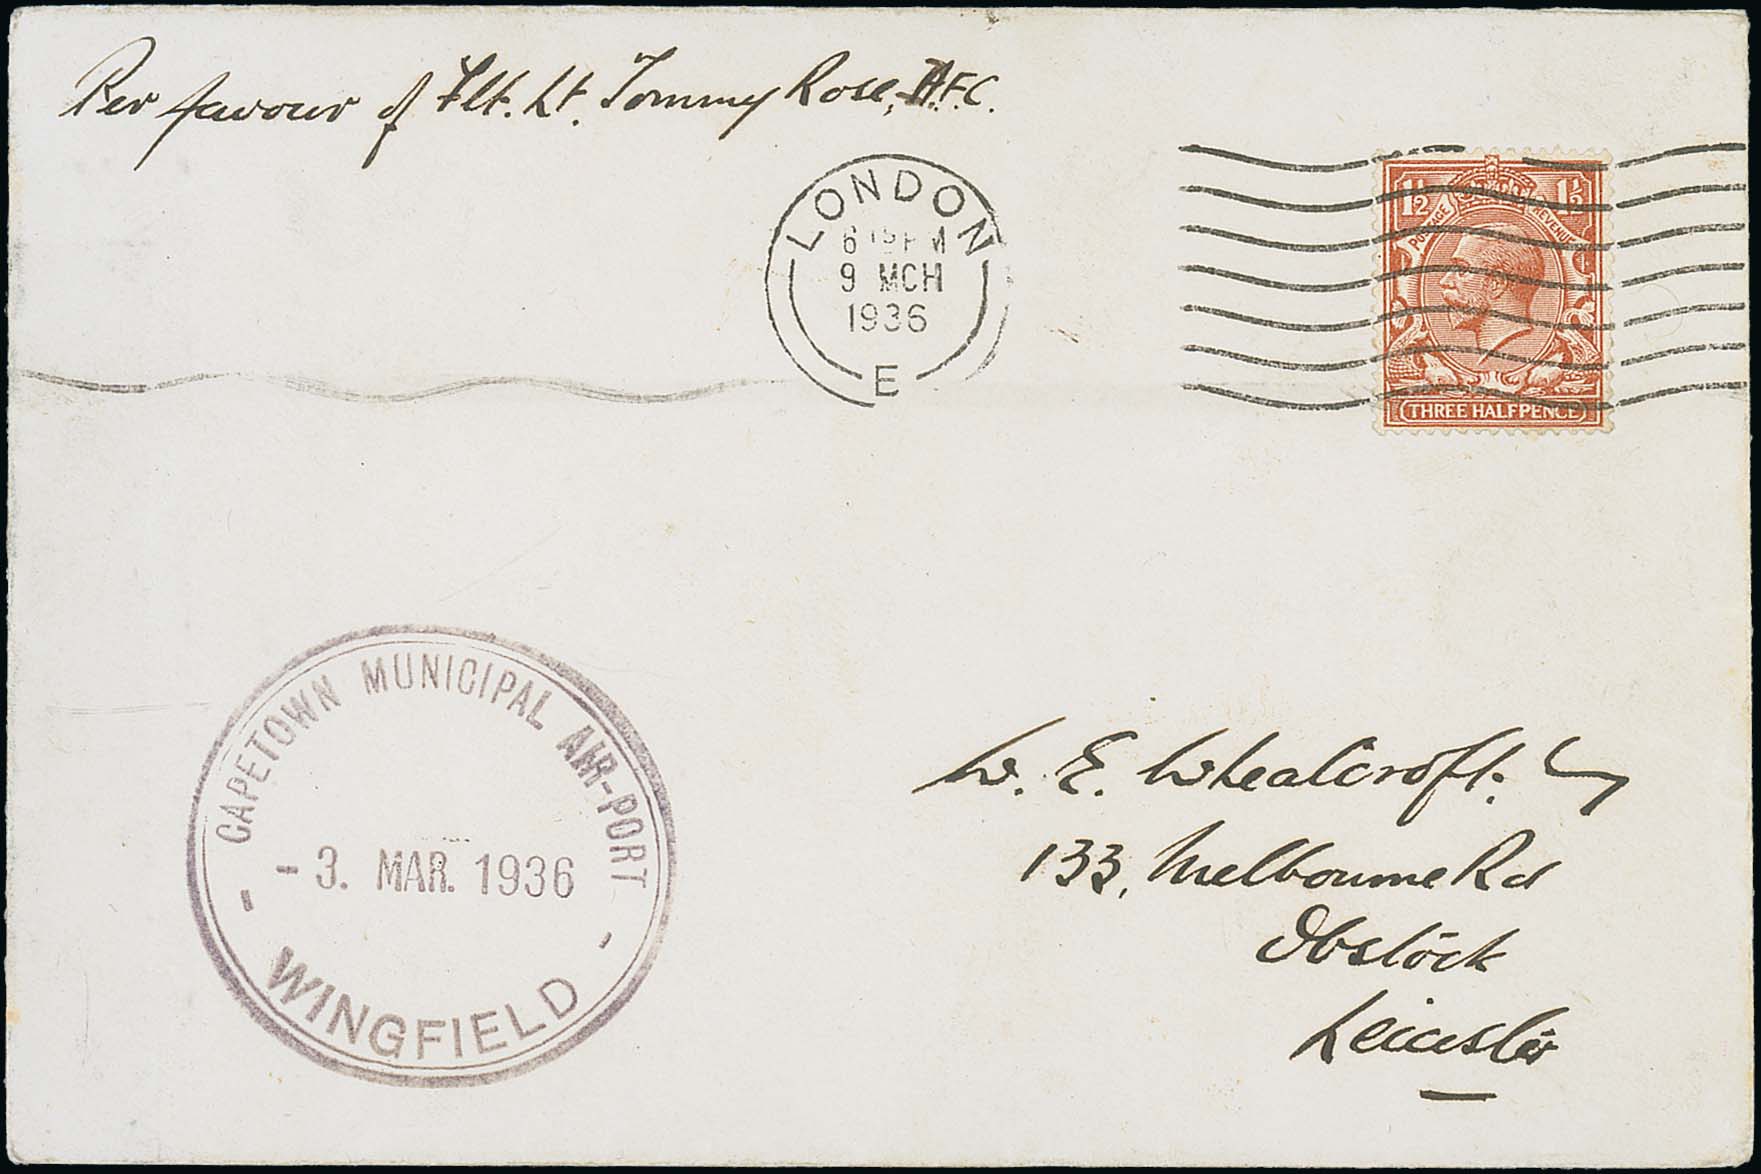 Per favour of Flt. Lt. Tommy Rose, D.F.C.
LONDON
6 15 PM
9 MCH
1936
E
1½ 1½
POSTAGE REVENUE
THREE HALFPENCE
CAPETOWN MUNICIPAL AIR-PORT
- 3. MAR. 1936
- WINGFIELD -
W. E. Wheatcroft.
133, Melbourne Rd
Ibstock
Leicester